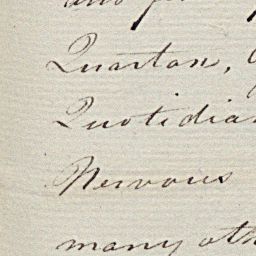 and
Quartan,
Quotidian
Nervous
many oth